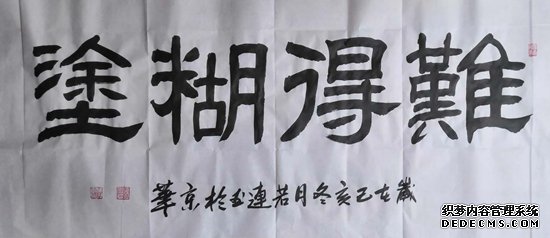 難得糊塗
歲在己亥冬月若連书於京華
织梦内容管理系统
DEDECMS.COM